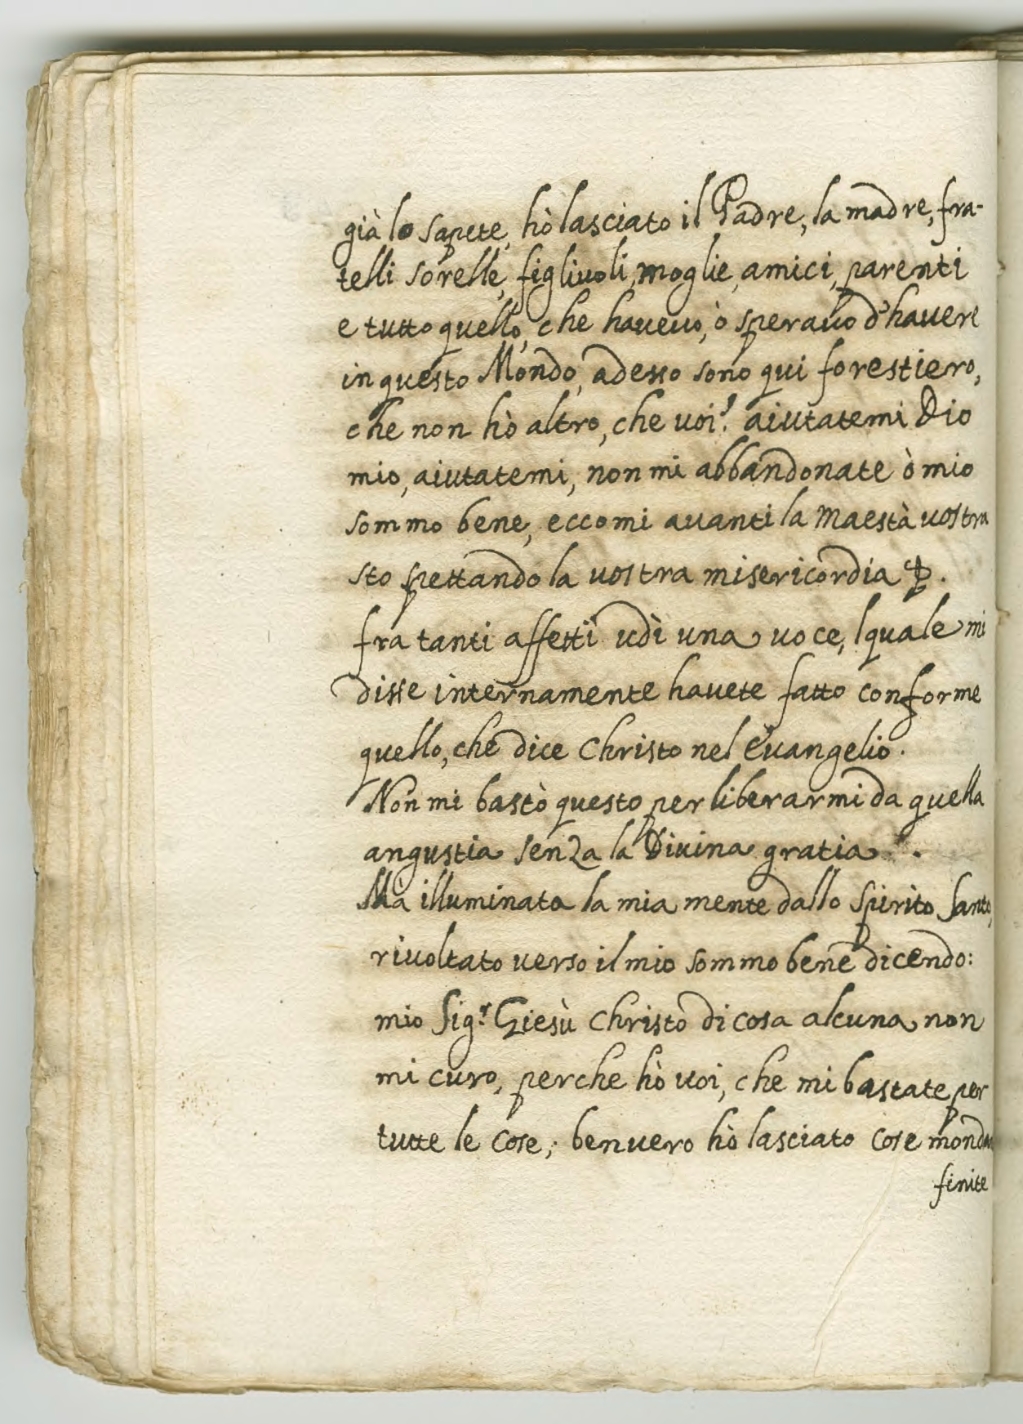 già lo sapete, hò lasciato il Padre, la madre, fra-
telli sorelle, figliuoli, moglie, amici, parenti
e tutto quello, che haueuo, ò sperauo d'hauere
in questo Mondo, adesso sono qui forestiero,
che non hò altro, che uoi! aiutatemi Dio
mio, aiutatemi, non mi abbandonate ò mio
sommo bene, eccomi auanti la Maestà uostra
sto spettando la uostra misericordia
fra tanti affetti udì una uoce, lquale mi
disse internamente hauete fatto conforme
quello, che dice Christo nel Euangelio.
Non mi bastò questo per liberarmi da quella
angustia senza la Diuina gratia.
Mà illuminata la mia mente dallo Spirito Santo,
riuoltato uerso il mio sommo bene dicendo:
mio Sig.r Giesù Christo di cosa alcuna non
mi curo, perche hò uoi, che mi bastate per
tutte le cose; benuero hò lasciato cose
finite